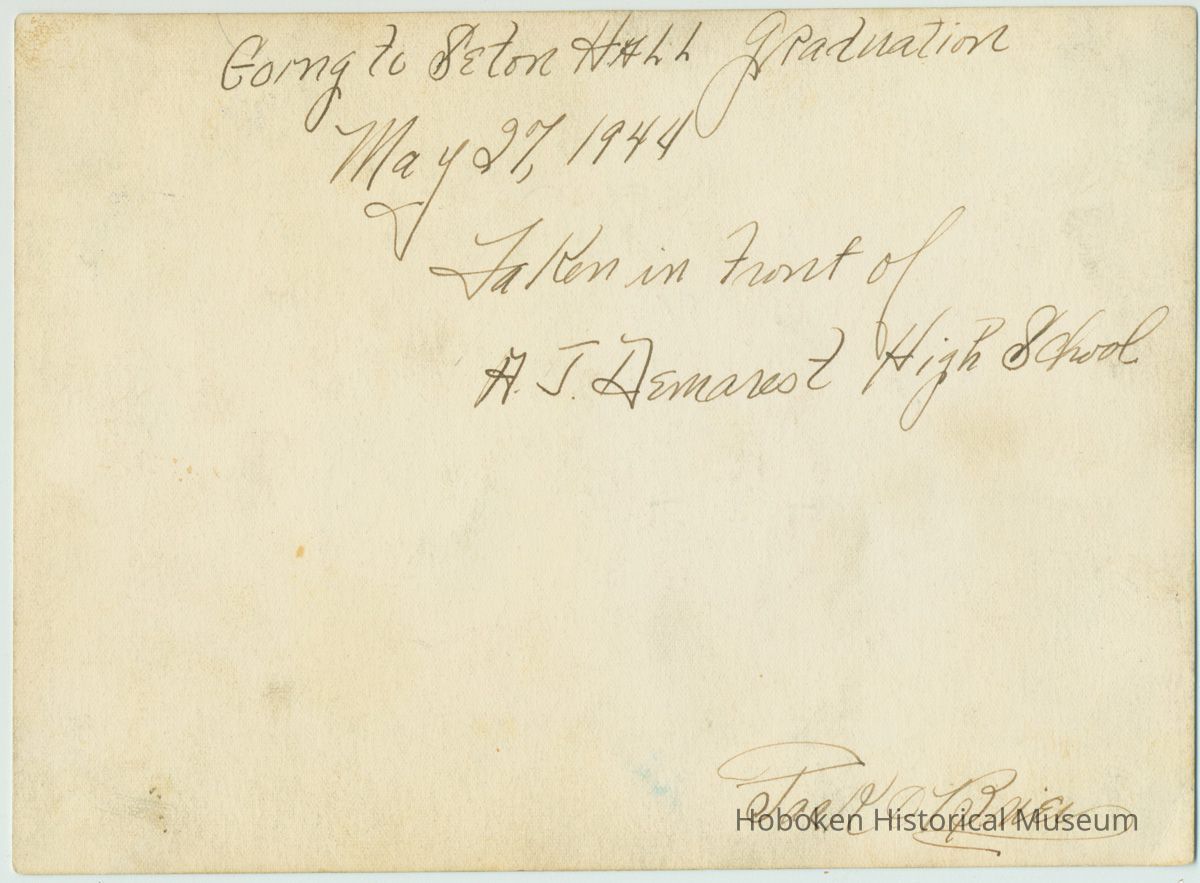 Going to Seton HALL Graduation
May 27, 1944
Taken in Front of
A. J. Demarest High School
Jack O'Brien
Hoboken Historical Museum